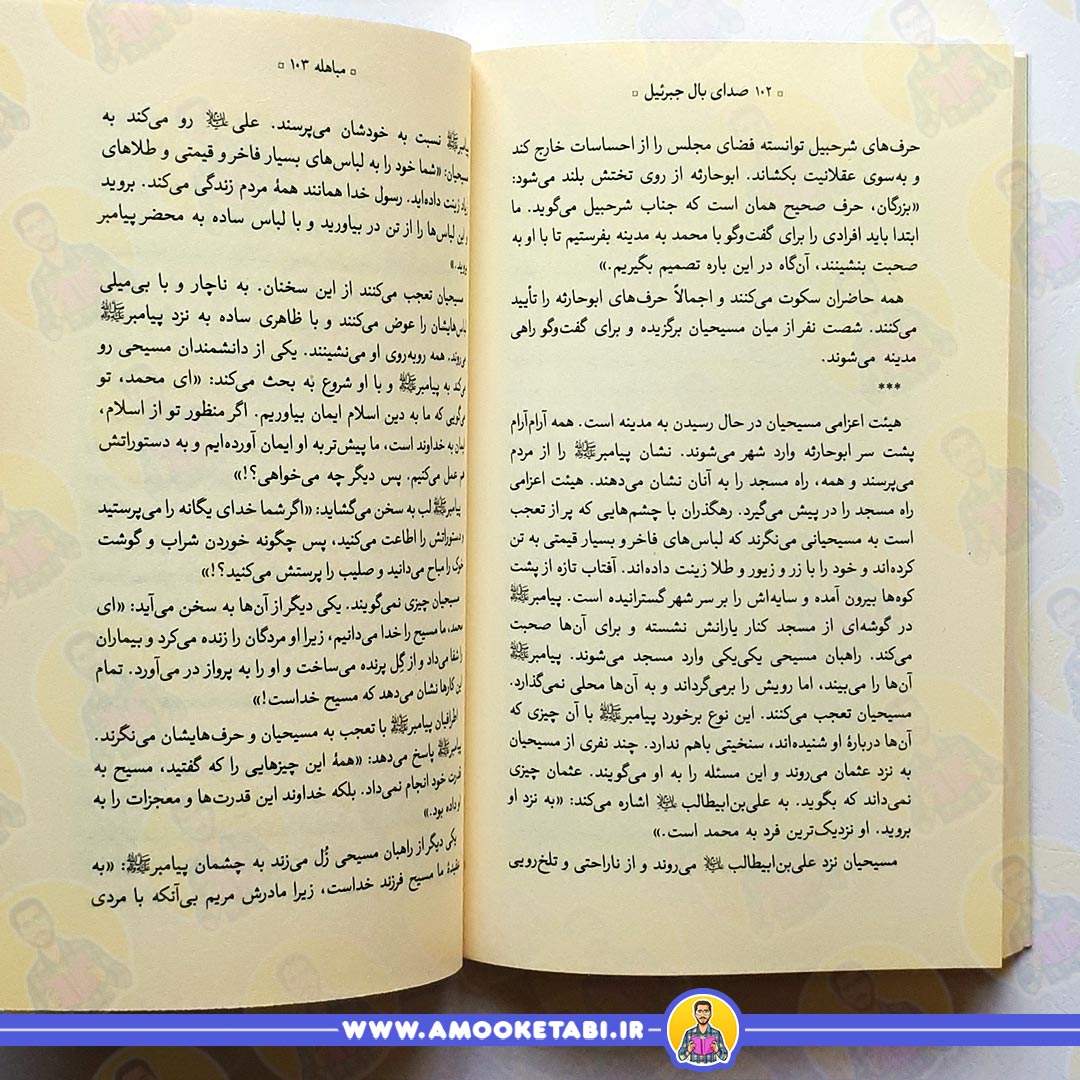 ▫ ۱۰۲ صدای بال جبرئیل ▫
حرف‌های شرحبیل توانسته فضای مجلس را از احساسات خارج کند
و به‌سوی عقلانیت بکشاند. ابوحارثه از روی تختش بلند می‌شود:
«بزرگان، حرف صحیح همان است که جناب شرحبیل می‌گوید. ما
ابتدا باید افرادی را برای گفت‌وگو با محمد به مدینه بفرستیم تا با او به
صحبت بنشینند، آن‌گاه در این باره تصمیم بگیریم.»
همه حاضران سکوت می‌کنند و اجمالاً حرف‌های ابوحارثه را تأیید
می‌کنند. شصت نفر از میان مسیحیان برگزیده و برای گفت‌وگو راهی
مدینه می‌شوند.
***
هیئت اعزامی مسیحیان در حال رسیدن به مدینه است. همه آرام‌آرام
پشت سر ابوحارثه وارد شهر می‌شوند. نشان پیامبرﷺ را از مردم
می‌پرسند و همه، راه مسجد را به آنان نشان می‌دهند. هیئت اعزامی
راه مسجد را در پیش می‌گیرد. رهگذران با چشم‌هایی که پر از تعجب
است به مسیحیانی می‌نگرند که لباس‌های فاخر و بسیار قیمتی به تن
کرده‌اند و خود را با زر و زیور و طلا زینت داده‌اند. آفتاب تازه از پشت
کوه‌ها بیرون آمده و سایه‌اش را بر سر شهر گسترانیده است. پیامبرﷺ
در گوشه‌ای از مسجد کنار یارانش نشسته و برای آن‌ها صحبت
می‌کند. راهبان مسیحی یکی‌یکی وارد مسجد می‌شوند. پیامبرﷺ
آن‌ها را می‌بیند، اما رویش را برمی‌گرداند و به آن‌ها محلی نمی‌گذارد.
مسیحیان تعجب می‌کنند. این نوع برخورد پیامبرﷺ با آن چیزی که
آن‌ها دربارهٔ او شنیده‌اند، سنخیتی باهم ندارد. چند نفری از مسیحیان
به نزد عثمان می‌روند و این مسئله را به او می‌گویند. عثمان چیزی
نمی‌داند که بگوید. به علی‌بن‌ابیطالب علیه‌السلام اشاره می‌کند: «به نزد او
بروید. او نزدیک‌ترین فرد به محمد است.»
مسیحیان نزد علی‌بن‌ابیطالب علیه‌السلام می‌روند و از ناراحتی و تلخ‌رویی
▫ مباهله ۱۰۳ ▫
پیامبرﷺ نسبت به خودشان می‌پرسند. علی علیه‌السلام رو می‌کند به
مسیحیان: «شما خود را به لباس‌های بسیار فاخر و قیمتی و طلاهای
زینت داده‌اید. رسول خدا همانند همهٔ مردم زندگی می‌کند. بروید
و این لباس‌ها را از تن در بیاورید و با لباس ساده به محضر پیامبر
بروید.»
مسیحیان تعجب می‌کنند از این سخنان. به ناچار و با بی‌میلی
لباس‌هایشان را عوض می‌کنند و با ظاهری ساده به نزد پیامبرﷺ
می‌روند. همه روبه‌روی او می‌نشینند. یکی از دانشمندان مسیحی رو
می‌کند به پیامبرﷺ و با او شروع به بحث می‌کند: «ای محمد، تو
می‌گویی که ما به دین اسلام ایمان بیاوریم. اگر منظور تو از اسلام،
ایمان به خداوند است، ما پیش‌تر به او ایمان آورده‌ایم و به دستوراتش
هم عمل می‌کنیم. پس دیگر چه می‌خواهی؟!»
پیامبرﷺ لب به سخن می‌گشاید: «اگر شما خدای یگانه را می‌پرستید
و دستوراتش را اطاعت می‌کنید، پس چگونه خوردن شراب و گوشت
خوک را مباح می‌دانید و صلیب را پرستش می‌کنید؟!»
مسیحیان چیزی نمی‌گویند. یکی دیگر از آن‌ها به سخن می‌آید: «ای
محمد، ما مسیح را خدا می‌دانیم، زیرا او مردگان را زنده می‌کرد و بیماران
را شفا می‌داد و از گِل پرنده می‌ساخت و او را به پرواز در می‌آورد. تمام
این کارها نشان می‌دهد که مسیح خداست!»
اطرافیان پیامبرﷺ با تعجب به مسیحیان و حرف‌هایشان می‌نگرند.
پیامبرﷺ پاسخ می‌دهد: «همهٔ این چیزهایی را که گفتید، مسیح به
قدرت خود انجام نمی‌داد. بلکه خداوند این قدرت‌ها و معجزات را به
او داده بود.»
یکی دیگر از راهبان مسیحی زُل می‌زند به چشمان پیامبرﷺ: «به
عقیدهٔ ما مسیح فرزند خداست، زیرا مادرش مریم بی‌آنکه با مردی
WWW.AMOOKETABI.IR